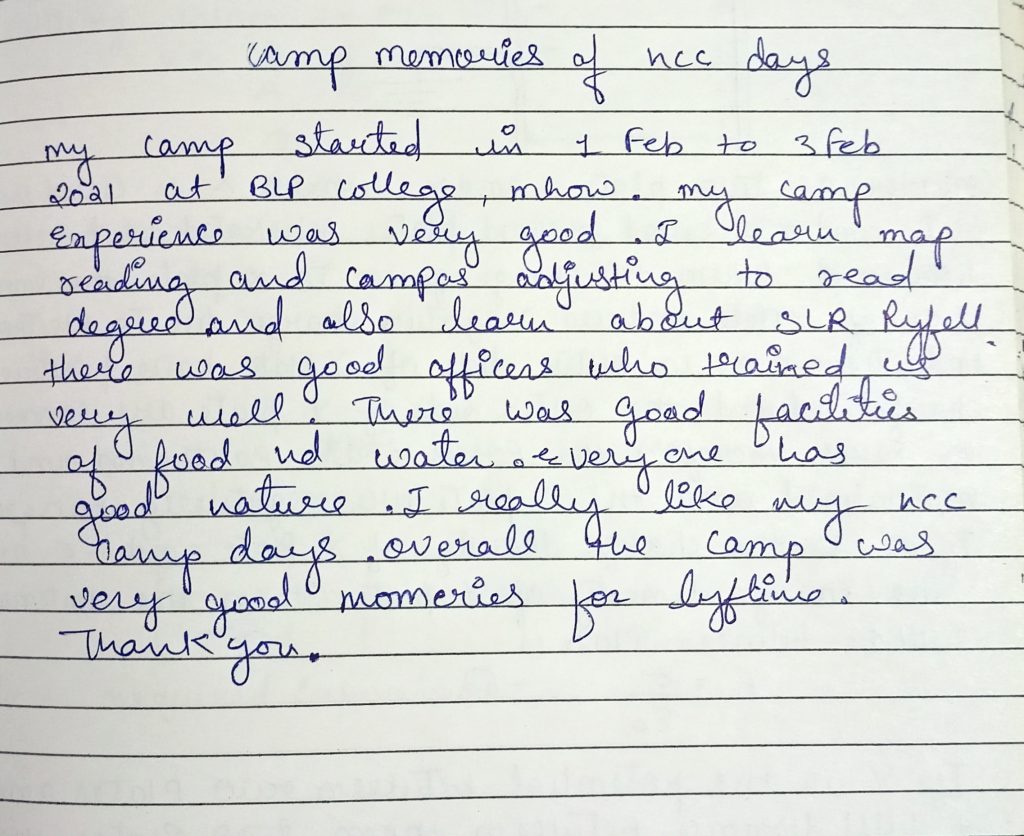 camp memories of ncc days
my camp started in 1 Feb to 3 Feb
2021 at BLP college, mhow. my camp
Experience was very good. I learn map
reading and campas adjusting to read
degree and also learn about SLR Ryfell.
there was good officers who trained us
very well. There was good facilities
of food nd water. everyone has
good nature. I really like my ncc
camp days. overall the camp was
very good momeries for lyftime.
Thank you.